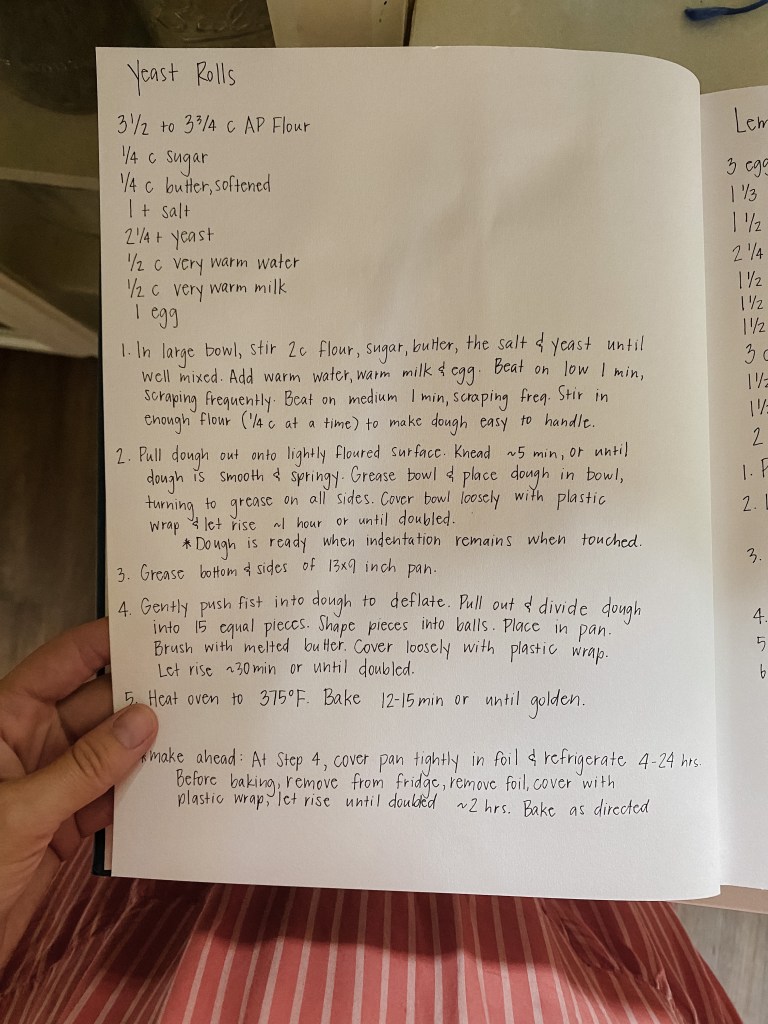 Yeast Rolls
3 1/2 to 3 3/4 c AP Flour
1/4 c sugar
1/4 c butter, softened
1 t salt
2 1/4 t yeast
1/2 c very warm water
1/2 c very warm milk
1 egg
1. In large bowl, stir 2c flour, sugar, butter, the salt & yeast until
well mixed. Add warm water, warm milk & egg. Beat on low 1 min,
scraping frequently. Beat on medium 1 min, scraping freq. Stir in
enough flour (1/4 c at a time) to make dough easy to handle.
2. Pull dough out onto lightly floured surface. Knead ~5 min, or until
dough is smooth & springy. Grease bowl & place dough in bowl,
turning to grease on all sides. Cover bowl loosely with plastic
wrap & let rise ~1 hour or until doubled.
* Dough is ready when indentation remains when touched.
3. Grease bottom & sides of 13x9 inch pan.
4. Gently push fist into dough to deflate. Pull out & divide dough
into 15 equal pieces. Shape pieces into balls. Place in pan.
Brush with melted butter. Cover loosely with plastic wrap.
Let rise ~30 min or until doubled.
5. Heat oven to 375°F. Bake 12-15 min or until golden.
*make ahead: At Step 4, cover pan tightly in foil & refrigerate 4-24 hrs.
Before baking, remove from fridge, remove foil, cover with
plastic wrap, let rise until doubled ~2 hrs. Bake as directed
Lem
3 egg
1 1/3
1 1/2
2 1/4
1 1/2
1 1/2
1 1/2
3 c
1 1/2
1 1/2
2
1. P
2.
3.
4.
5
6